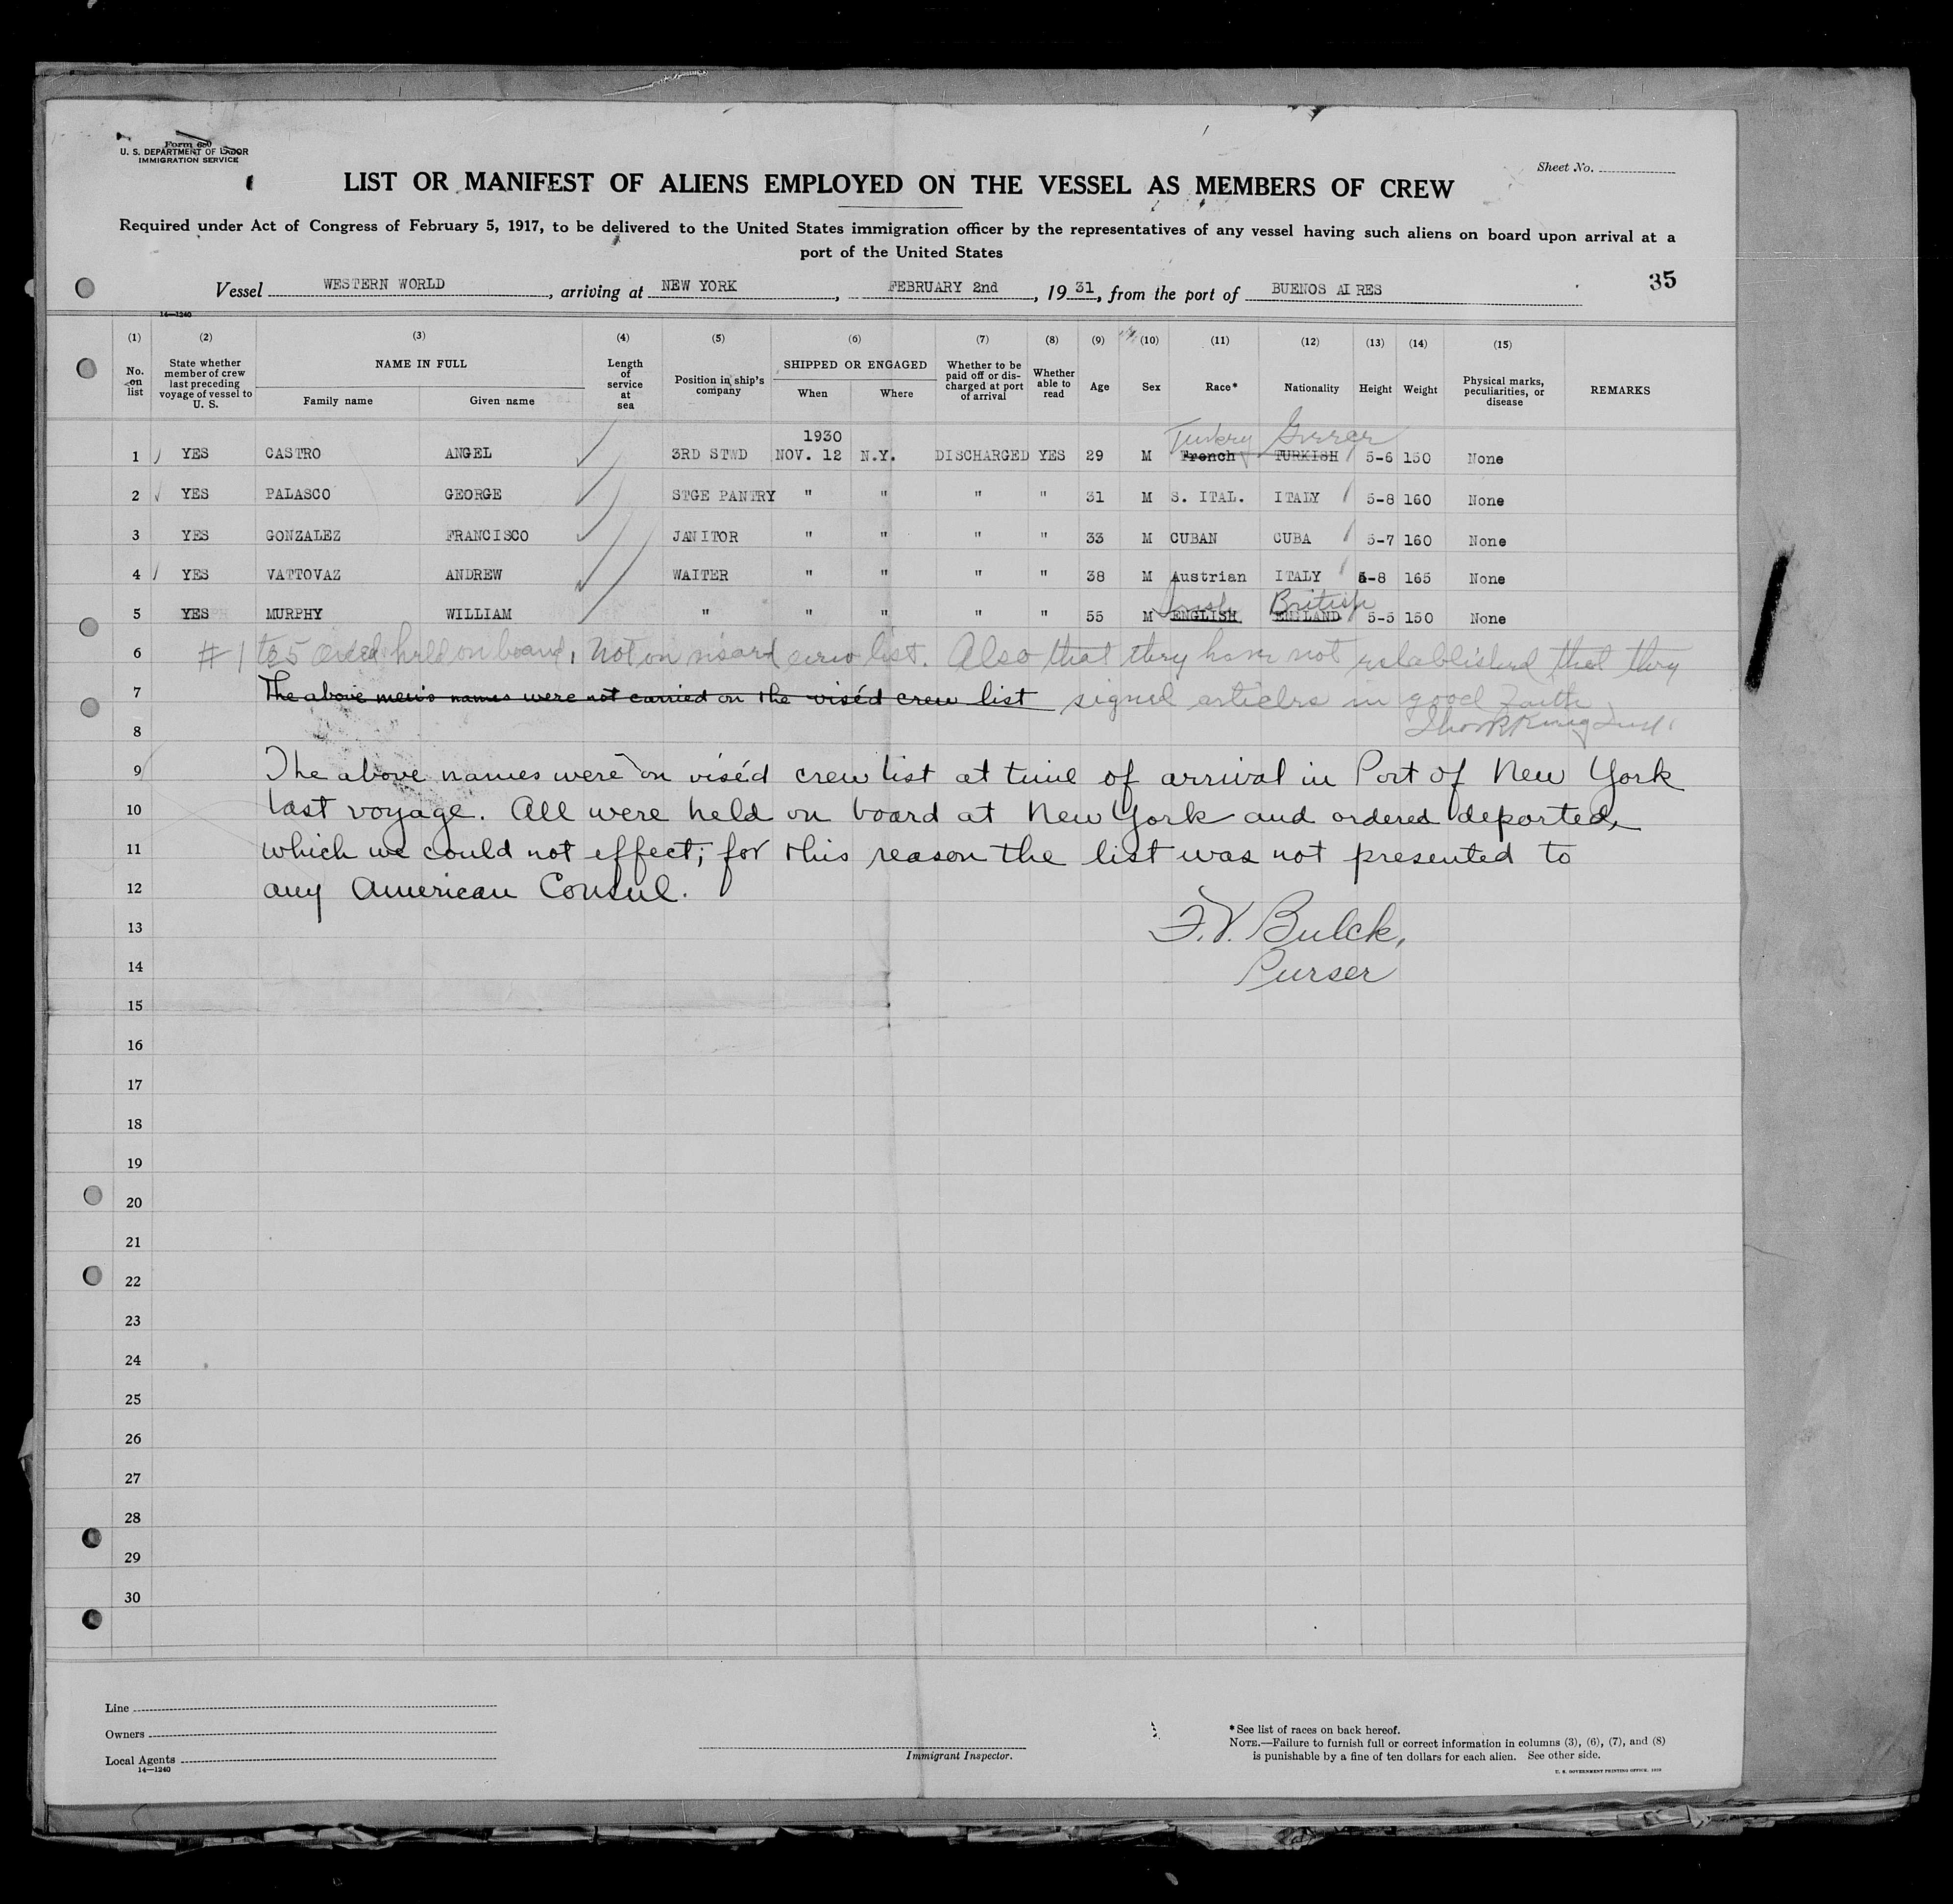 Form 680
U. S. DEPARTMENT OF LABOR
IMMIGRATION SERVICE
Sheet No.
LIST OR MANIFEST OF ALIENS EMPLOYED ON THE VESSEL AS MEMBERS OF CREW
Required under Act of Congress of February 5, 1917, to be delivered to the United States immigration officer by the representatives of any vessel having such aliens on board upon arrival at a
port of the United States
Vessel WESTERN WORLD, arriving at NEW YORK, FEBRUARY 2nd, 1931, from the port of BUENOS AIRES
35
14—1240
(1) (2) (3) (4) (5) (6) (7) (8) (9) (10) (11) (12) (13) (14) (15)
No. on list State whether member of crew last preceding voyage of vessel to U. S. NAME IN FULL Family name Given name Length of service at sea Position in ship's company SHIPPED OR ENGAGED When Where Whether to be paid off or discharged at port of arrival Whether able to read Age Sex Race* Nationality Height Weight Physical marks, peculiarities, or disease REMARKS
1930
1 YES CASTRO ANGEL 3RD STWD NOV. 12 N.Y. DISCHARGED YES 29 M French TURKISH 5-6 150 None
2 YES PALASCO GEORGE STGE PANTRY " " " " 31 M S. ITAL. ITALY 5-8 160 None
3 YES GONZALEZ FRANCISCO JANITOR " " " " 33 M CUBAN CUBA 5-7 160 None
4 YES VATTOVAZ ANDREW WAITER " " " " 38 M Austrian ITALY 5-8 165 None
Irish British
5 YES MURPHY WILLIAM " " " " " 55 M ENGLISH ENGLAND 5-5 150 None
6 # 1 to 5 held on board, Not on visaed crew list. Also that they have not established that they
7 The above men's names were not carried on the viséd crew list signed articles in good faith
8
9 The above names were on viséd crew list at time of arrival in Port of New York
10 last voyage. All were held on board at New York and ordered deported,
11 which we could not effect; for this reason the list was not presented to
12 any American Consul.
13 F.V. Bulck,
14 Purser
15
16
17
18
19
20
21
22
23
24
25
26
27
28
29
30
Line
Owners
Local Agents
14—1240
Immigrant Inspector.
*See list of races on back hereof.
NOTE.—Failure to furnish full or correct information in columns (3), (6), (7), and (8)
is punishable by a fine of ten dollars for each alien. See other side.
U. S. GOVERNMENT PRINTING OFFICE